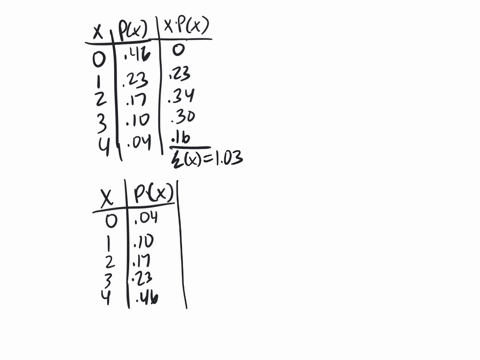 X P(x) X·P(x)
0 .46 0
1 .23 .23
2 .17 .34
3 .10 .30
4 .04 .16
ξ(x)=1.03
X P(x)
0 .04
1 .10
2 .17
3 .23
4 .46